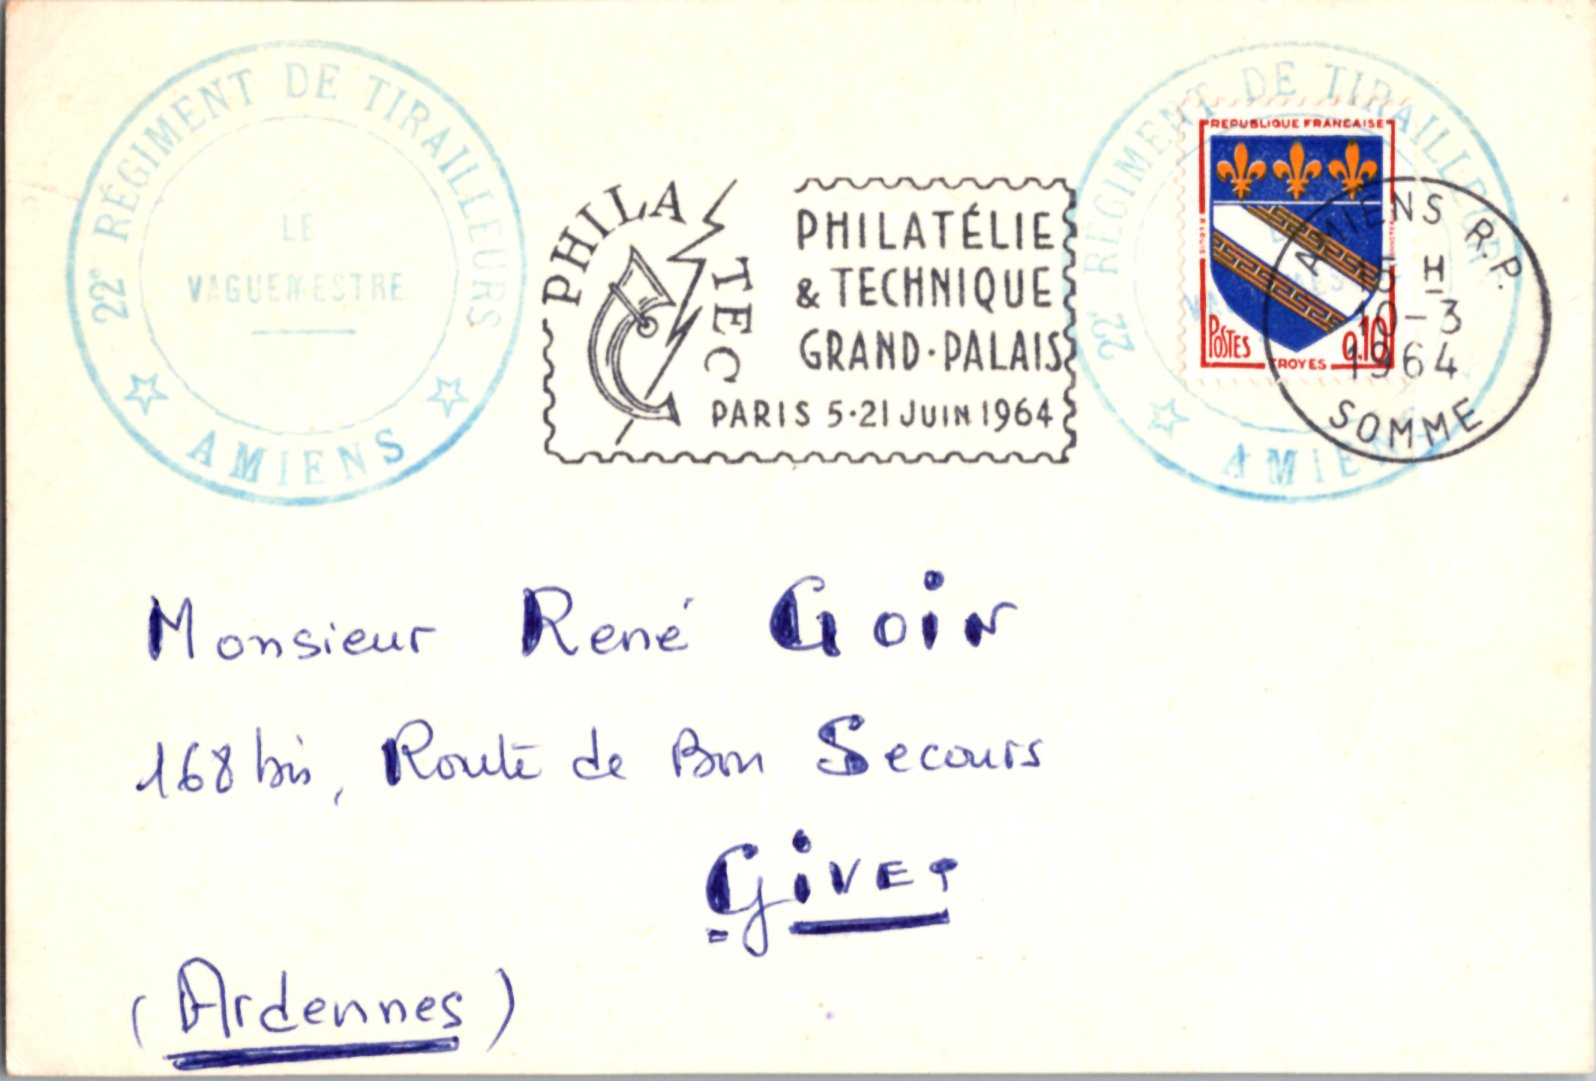 22e RÉGIMENT DE TIRAILLEURS
LE
VAGUEMESTRE
AMIENS
PHILATEC
PHILATÉLIE
& TECHNIQUE
GRAND-PALAIS
PARIS 5·21 JUIN 1964
22e RÉGIMENT DE TIRAILLEURS
AMIENS
REPUBLIQUE FRANÇAISE
POSTES
0,10
TROYES
AMIENS R.P.
H
10-3
1964
SOMME
Monsieur René Goin
168 bis, Route de Bon Secours
GiVET
(Ardennes)